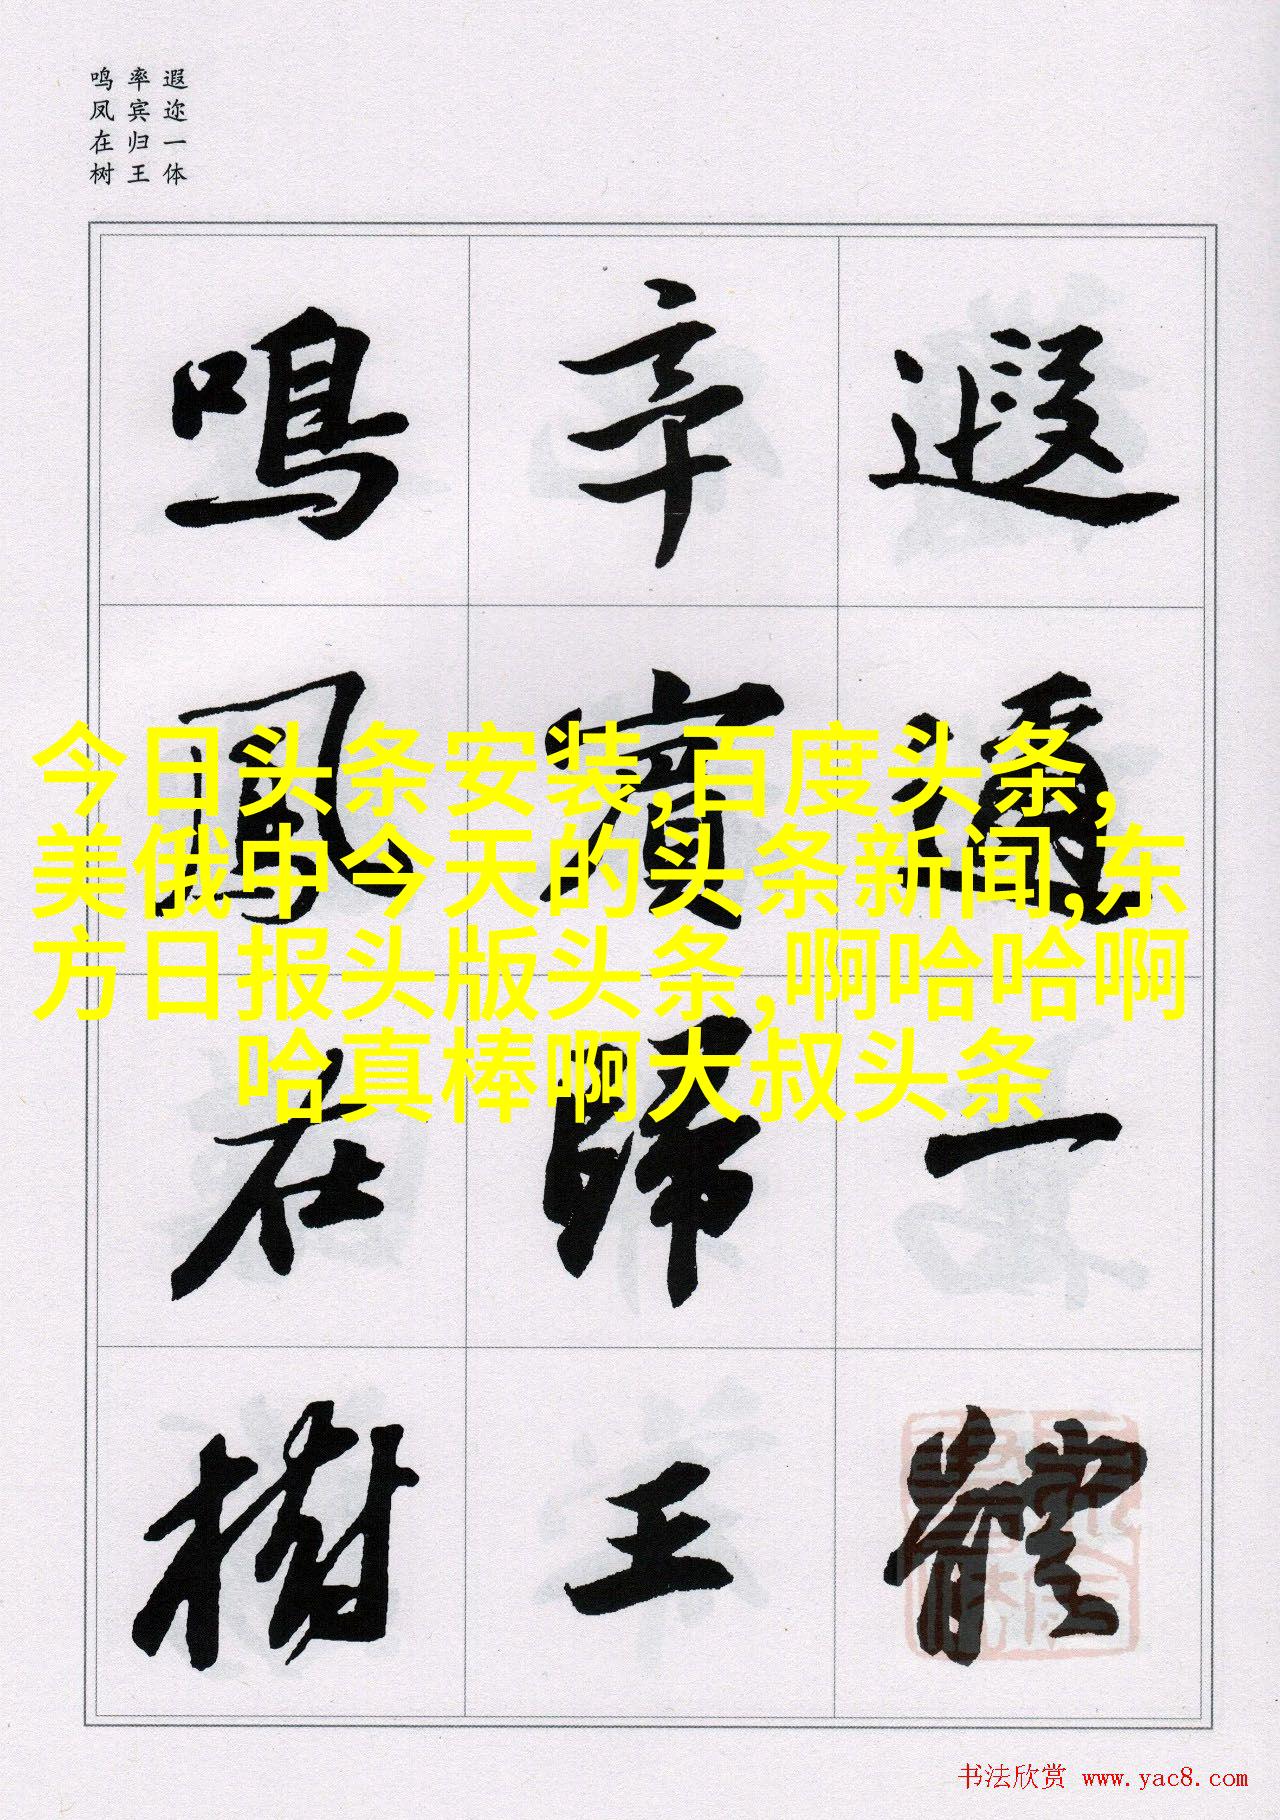 遐迩一体
率宾归王
鸣凤在树
遐邇一體
率賓歸王
鳴鳳在樹
今日头条安装,百度头条,
美俄中今天的头条新闻,东
方日报头版头条,啊哈哈啊
哈真棒啊大叔头条
书法欣赏 www.yac8.com